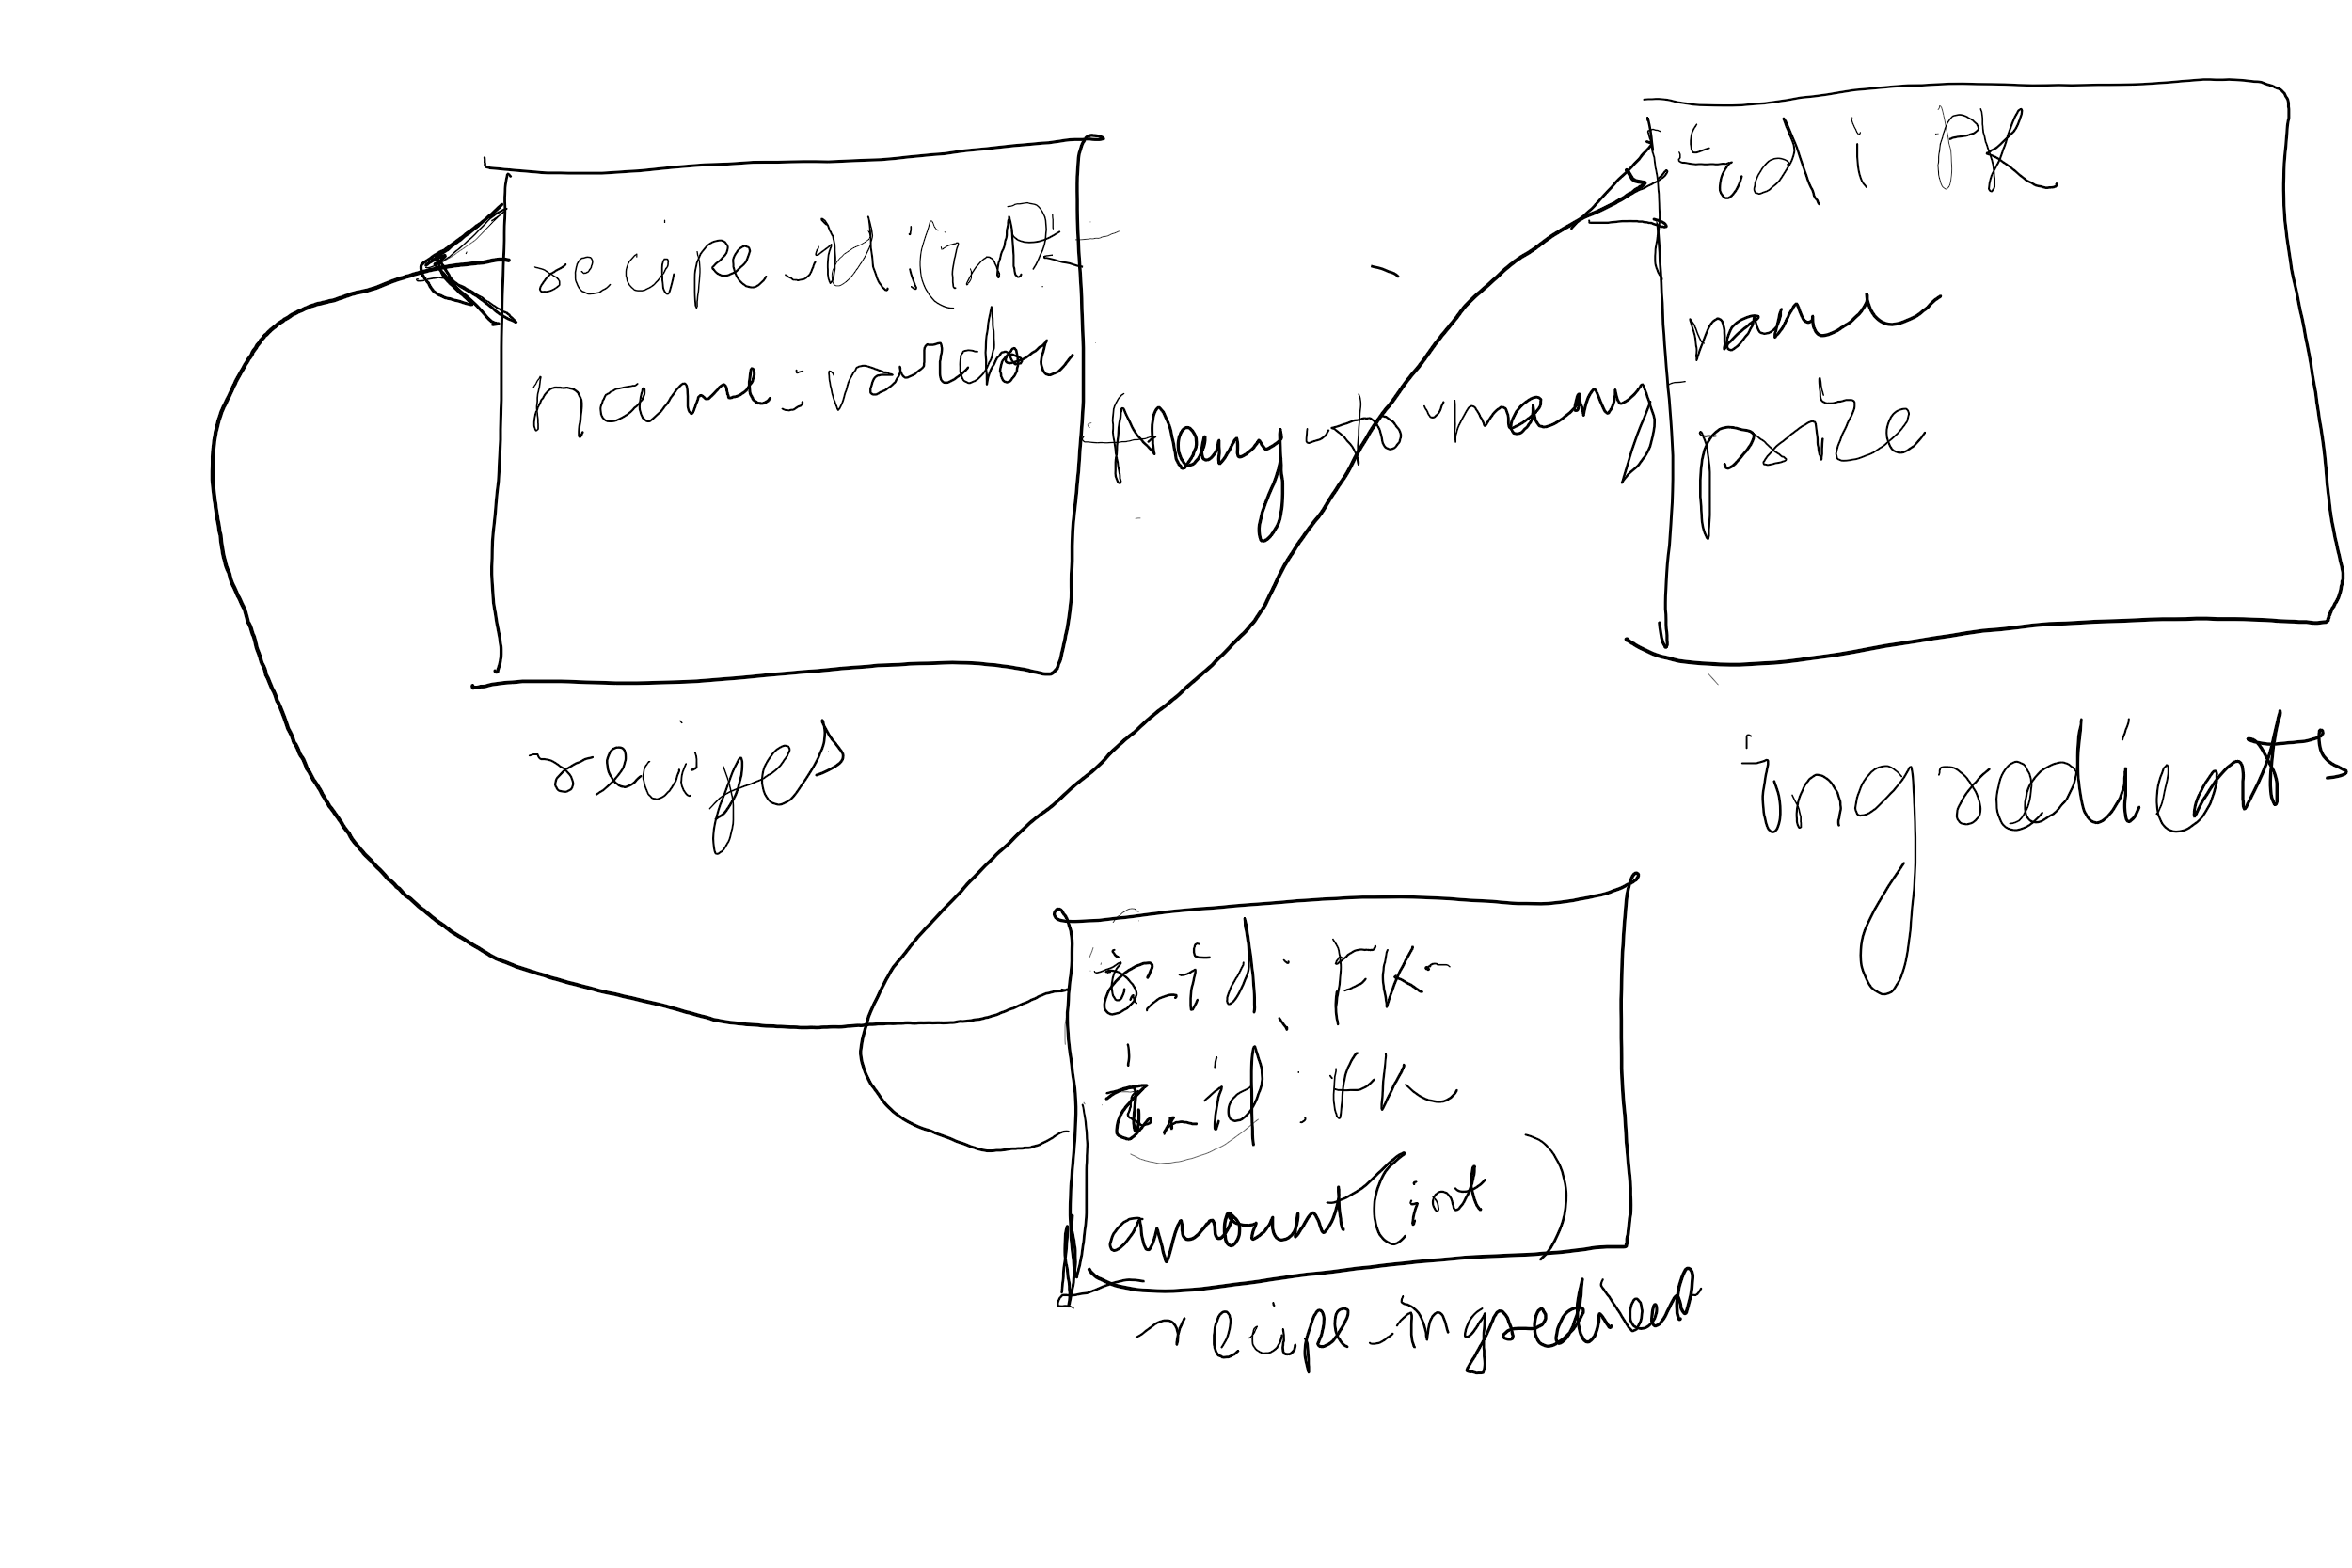 recipe_id: (int
name: varchar
Many - to - many
id : PK
name
price
recipes
ingredients
r_id : FK
i_id : FK
amount (int)
recipe-ingredient